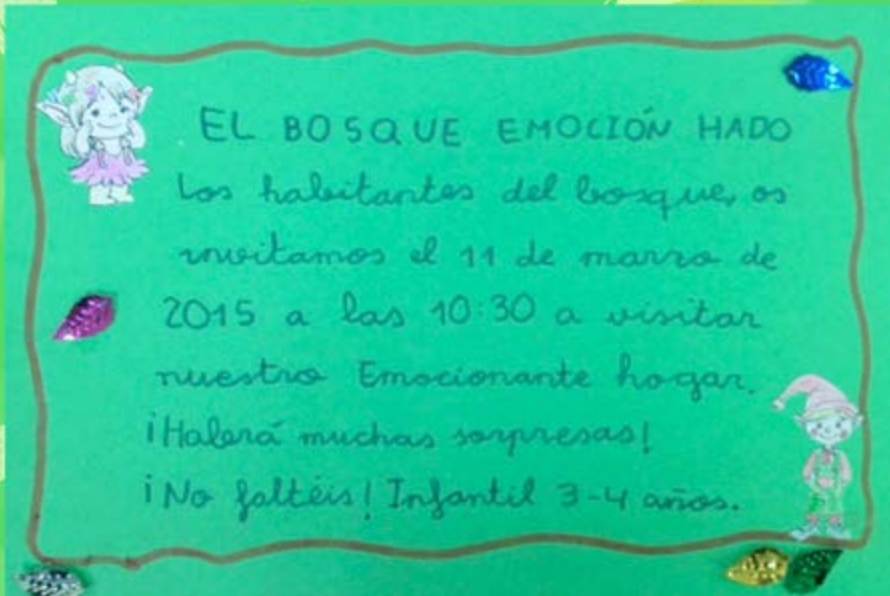 EL BOSQUE EMOCIÓN HADO
Los habitantes del bosque, os
invitamos el 11 de marzo de
2015 a las 10:30 a visitar
nuestro Emocionante hogar.
¡Habrá muchas sorpresas!
¡No faltéis! Infantil 3-4 años.